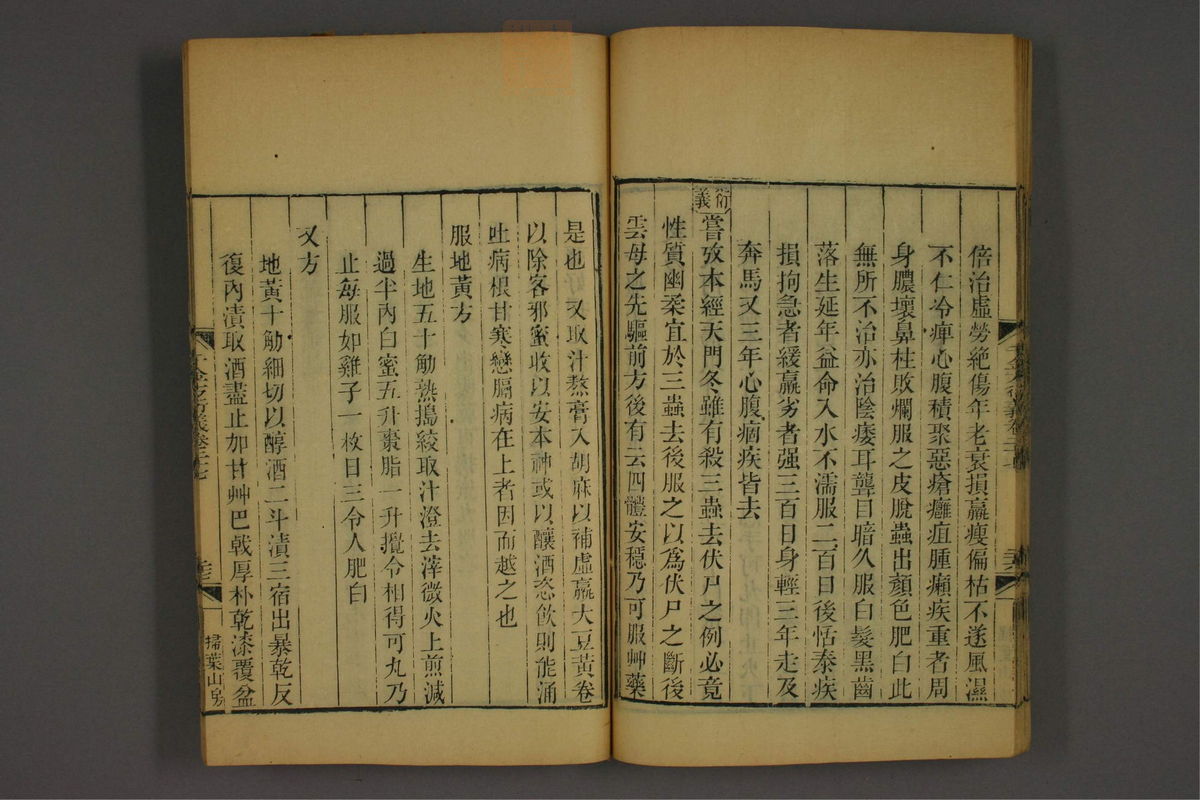 倍治虛勞絕傷年老衰損羸瘦偏枯不遂風濕
不仁冷痺心腹積聚惡瘡癰疽腫癩疾重者周
身膿壞鼻柱敗爛服之皮脫蟲出顏色肥白此
無所不治亦治陰痿耳聾目暗久服白髮黑齒
落生延年益命入水不濡服二百日後恬泰疾
損拘急者緩羸劣者强三百日身輕三年走及
奔馬又三年心腹痼疾皆去
衍義
嘗攷本經天門冬雖有殺三蟲去伏尸之例必竟
性質幽柔宜於三蟲去後服之以爲伏尸之斷後
雲母之先驅前方後有云四體安穩乃可服艸藥
是也 又取汁熬膏入胡麻以補虛羸大豆黃卷
以除客邪蜜收以安本神或以釀酒恣飲則能涌
吐病根甘寒戀膈病在上者因而越之也
服地黃方
生地五十觔熟搗絞取汁澄去滓微火上煎減
過半內白蜜五升棗脂一升攪令相得可丸乃
止每服如雞子一枚日三令人肥白
又方
地黃十觔細切以醇酒二斗漬三宿出暴乾反
復內漬取酒盡止加甘艸巴戟厚朴乾漆覆盆
掃葉山房